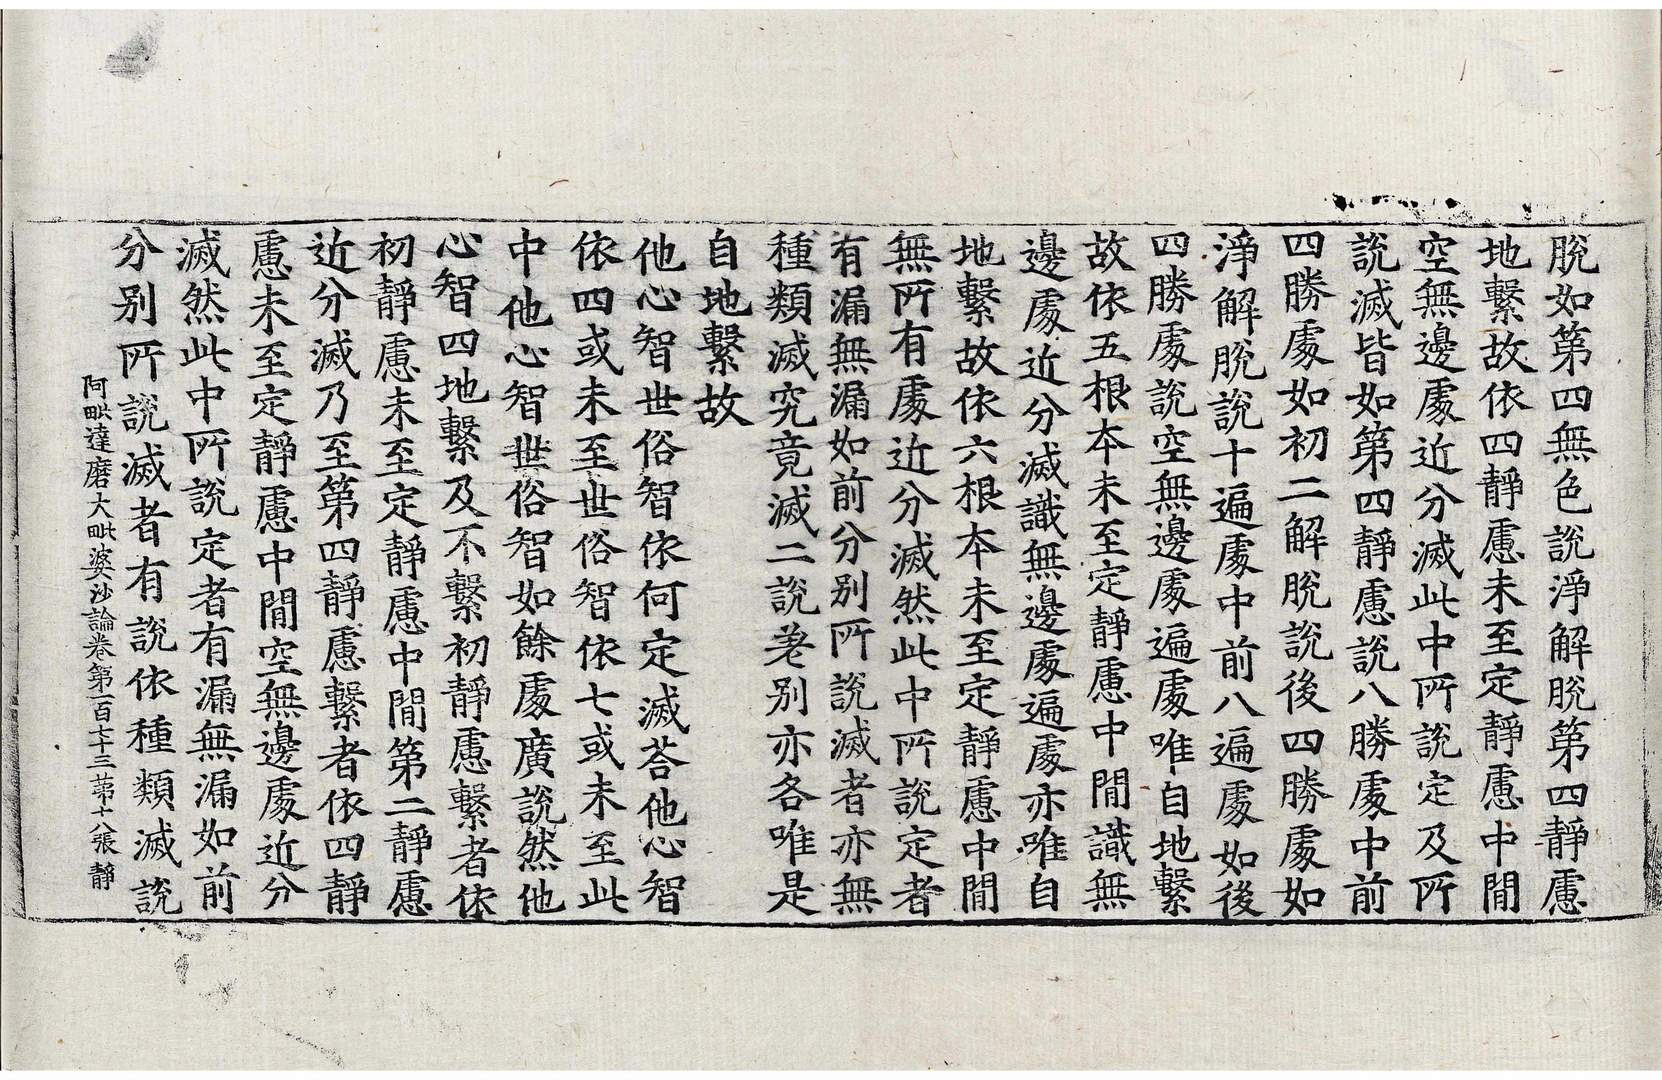 脫如第四無色說淨解脫第四靜慮
地繫故依四靜慮未至定靜慮中閒
空無邊處近分滅此中所說定及所
說滅皆如第四靜慮說八勝處中前
四勝處如初二解脫說後四勝處如
淨解脫說十遍處中前八遍處如後
四勝處說空無邊處遍處唯自地繫
故依五根本未至定靜慮中閒識無
邊處近分滅識無邊處遍處亦唯自
地繫故依六根本未至定靜慮中閒
無所有處近分滅然此中所說定者
有漏無漏如前分別所說滅者亦無
種類滅究竟滅二說差別亦各唯是
自地繫故
他心智世俗智依何定滅荅他心智
依四或未至世俗智依七或未至此
中他心智世俗智如餘處廣說然他
心智四地繫及不繫初靜慮繫者依
初靜慮未至定靜慮中閒第二靜慮
近分滅乃至第四靜慮繫者依四靜
慮未至定靜慮中閒空無邊處近分
滅然此中所說定者有漏無漏如前
分別所說滅者有說依種類滅說
阿毗達磨大毗婆沙論卷第一百七十三苐十八張 靜